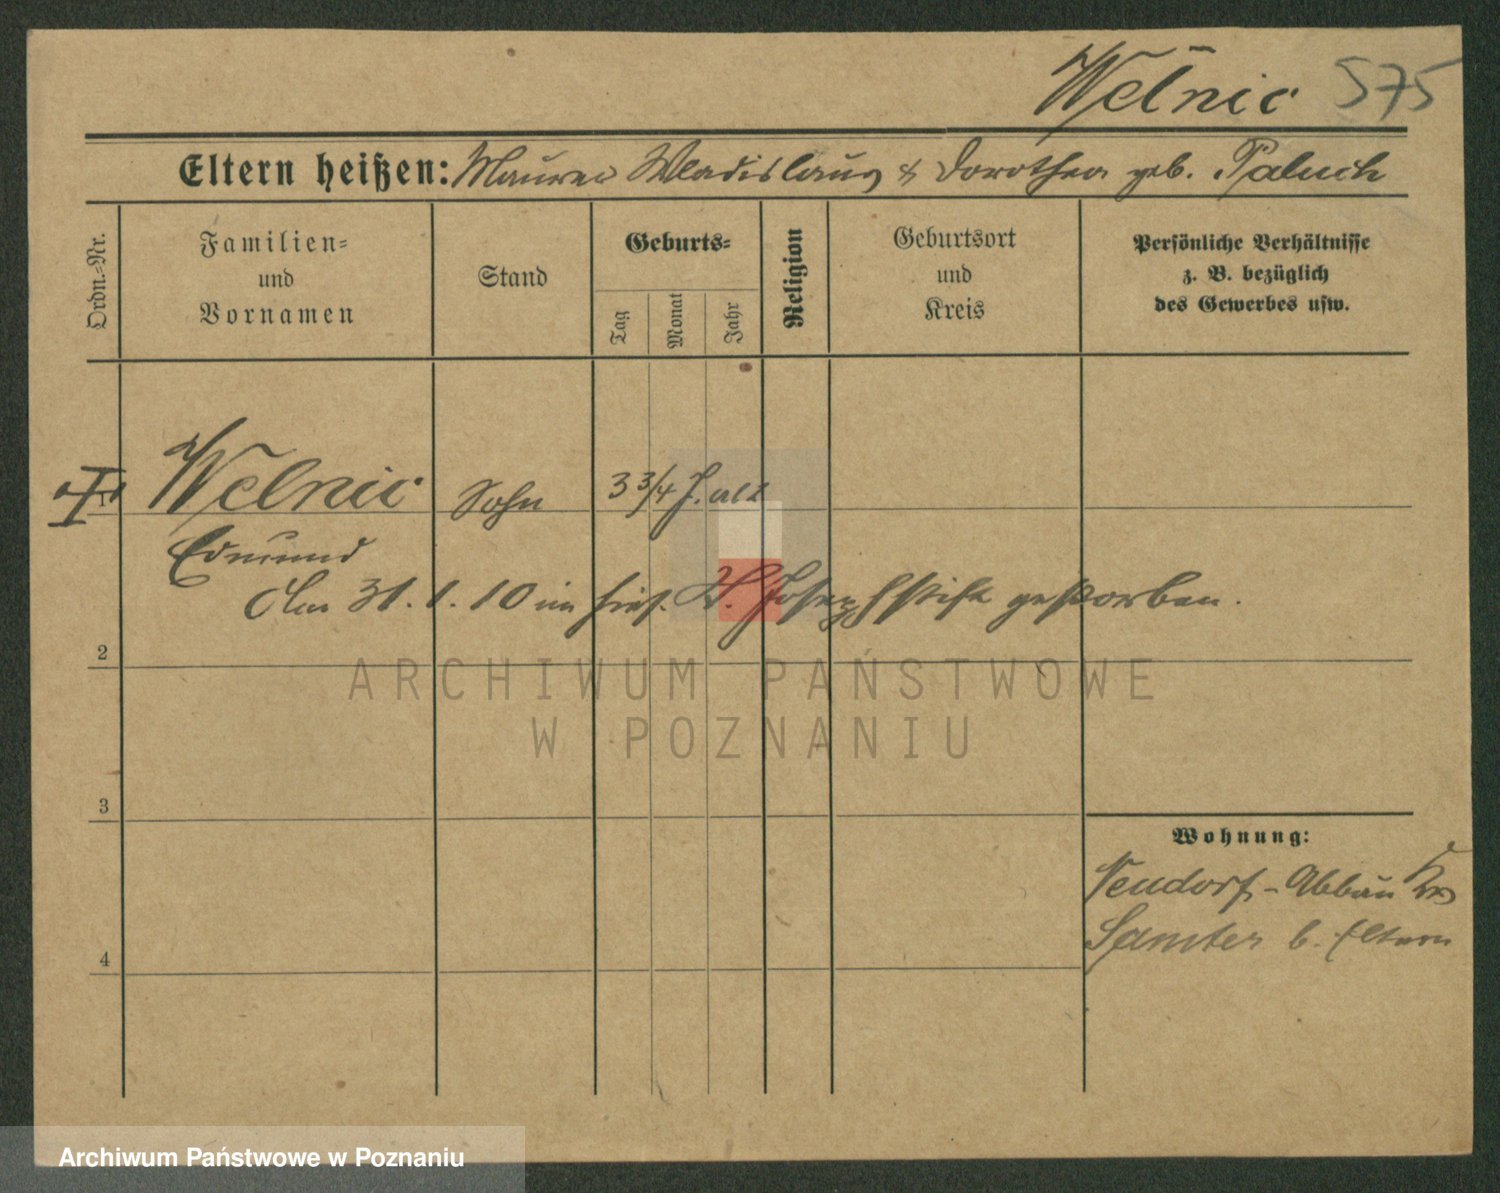 Wełnic 575
Eltern heißen: Maurer Wladislaus & Dorothea geb. Paluch
Ordn.-Nr.
Familien-
und
Vornamen
Stand
Geburts-
Tag
Monat
Jahr
Religion
Geburtsort
und
Kreis
Persönliche Verhältnisse
z. B. bezüglich
des Gewerbes usw.
1 Welnic Sohn 3 3/4 J. alt
Edmund
Am 31.1.10 im hies. St. Josephstift gestorben.
2
3
4
Wohnung:
Neudorf-Abbau Kr.
Samter b. Eltern
ARCHIWUM PAŃSTWOWE
W POZNANIU
Archiwum Państwowe w Poznaniu